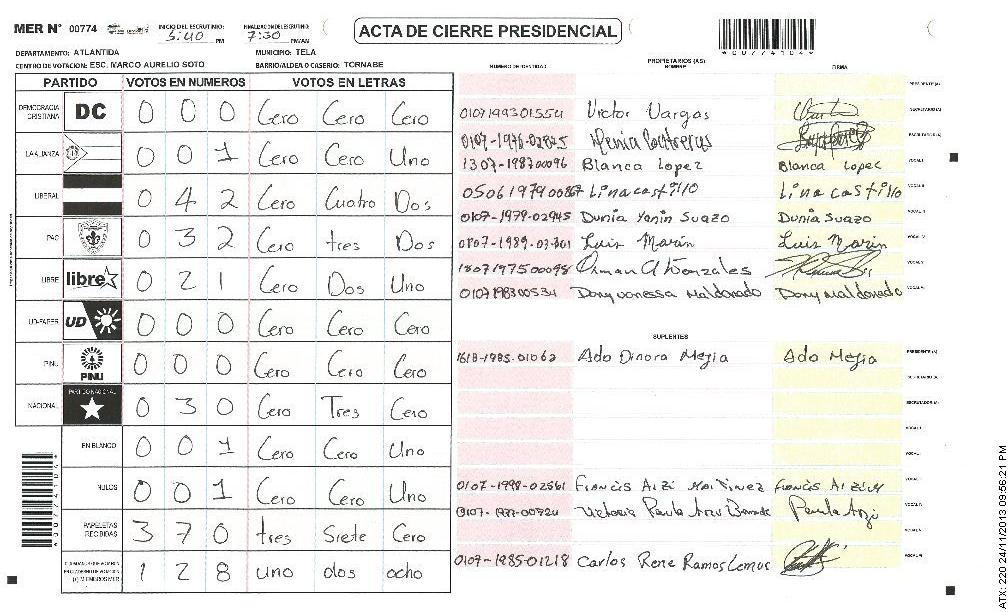 MER N° 00774 INICIO DEL ESCRUTINIO: 5:40 PM FINALIZACION DEL ESCRUTINIO: 7:30 PM/AM ACTA DE CIERRE PRESIDENCIAL
DEPARTAMENTO: ATLANTIDA MUNICIPIO: TELA
CENTRO DE VOTACION: ESC. MARCO AURELIO SOTO BARRIO/ALDEA O CASERIO: TORNABE
PARTIDO VOTOS EN NUMEROS VOTOS EN LETRAS
DEMOCRACIA CRISTIANA DC 0 0 0 Cero Cero Cero
LA ALIANZA 0 0 1 Cero Cero Uno
LIBERAL 0 4 2 Cero Cuatro Dos
PAC 0 3 2 Cero tres Dos
LIBRE libre 0 2 1 Cero Dos Uno
UD-FAPER UD 0 0 0 Cero Cero Cero
PINU PINU 0 0 0 Cero Cero Cero
NACIONAL PARTIDO NACIONAL 0 3 0 Cero Tres Cero
EN BLANCO 0 0 1 Cero Cero Uno
NULOS 0 0 1 Cero Cero Uno
PAPELETAS RECIBIDAS 3 7 0 tres Siete Cero
1 2 8 uno dos ocho
NUMERO DE IDENTIDAD PROPIETARIOS (AS) NOMBRE FIRMA
PRESIDENTE (A)
0107199301554 Victor Vargas SECRETARIO (A)
ESCRUTADOR (A)
1307-198700096 Blanca Lopez Blanca Lopez VOCAL I
Lina castillo Lina castillo VOCAL II
0107-1979-02945 Dunia Yanin Suazo Dunia Suazo VOCAL III
Luis Marin Luis Marin VOCAL IV
1807197500098 Gonzales VOCAL V
0107198300534 Dony vanessa Maldonado Dony Maldonado VOCAL VI
SUPLENTES
1618-1985-01062 Ado Dinora Mejia Ado Mejia PRESIDENTE (A)
SECRETARIO (A)
ESCRUTADOR (A)
VOCAL I
VOCAL II
0107-1998-02561 Francis Arzu Martinez VOCAL III
Paula VOCAL IV
VOCAL V
0107-1985-01218 Carlos Rene Ramos Lemus VOCAL VI
ATX: 220 24/11/2013 09:56:21 PM